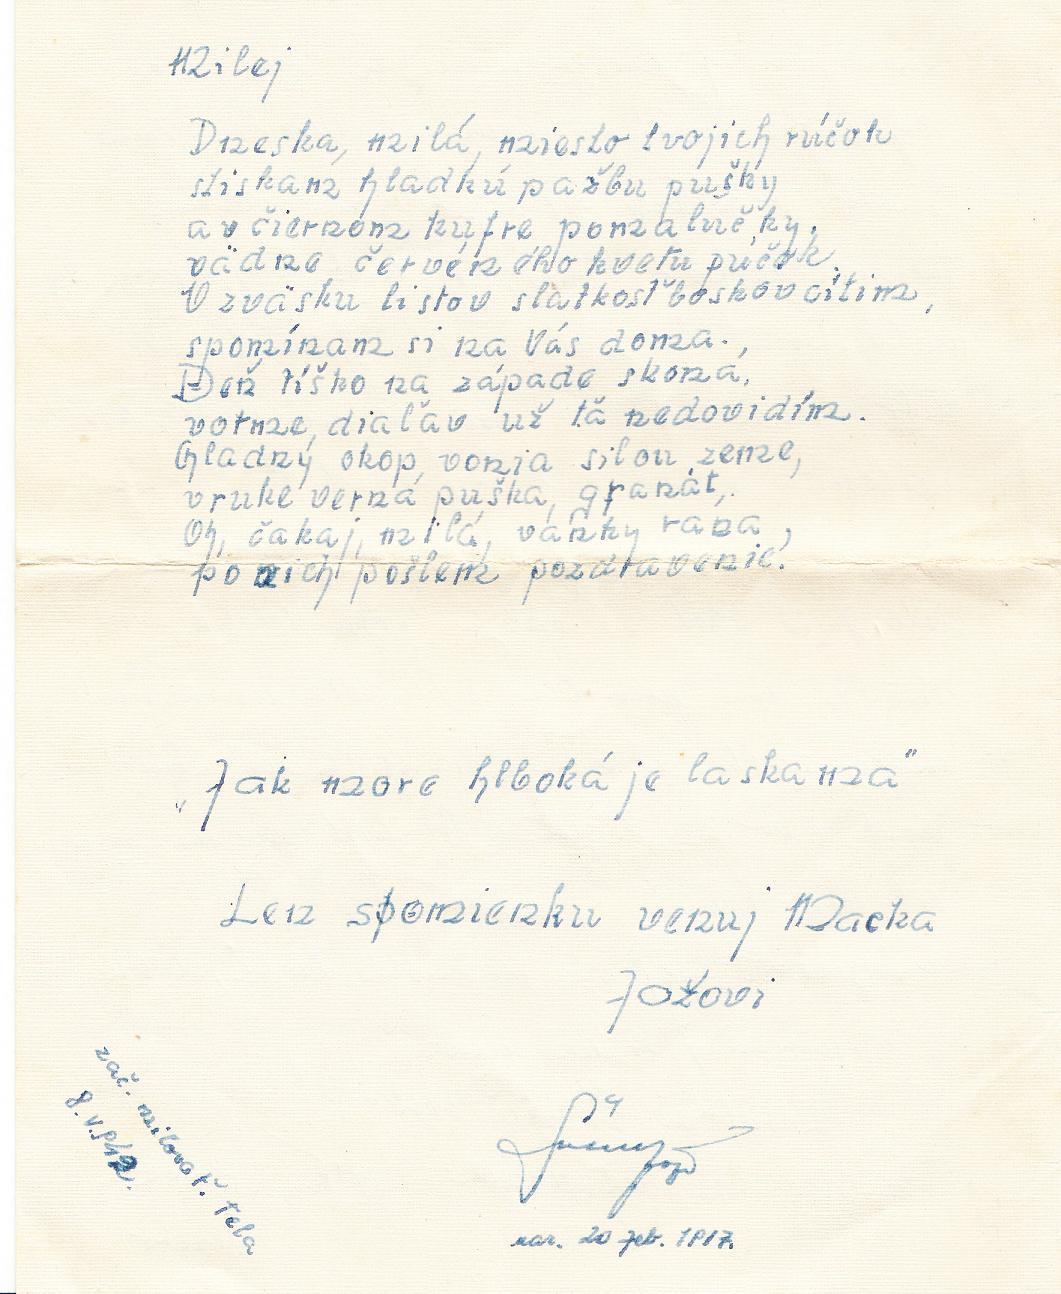 Milej
Dneska, milá, miesto tvojich rúčok
stískam hladkú pažbu pušky
a v čiernom kufre pomalučky,
vädne červeného kvetu púčok.
V zväsku listov slatkosť boskov cítim,
spomínam si na Vás doma.,
Deň tíško na západe skoná,
votme, diaľav už ťa nedovidím.
Hladný okop, vonia silou zeme,
v ruke verná puška, granát,.
Oh, čakaj, milá, vánky rana,
po nich pošlem pozdravenie.
„Jak more hlboká je laska má"
Len spomienku venuj Macka
Jožovi
nar. 20 feb. 1917.
zač. milovať. Teba
8. V. 942.